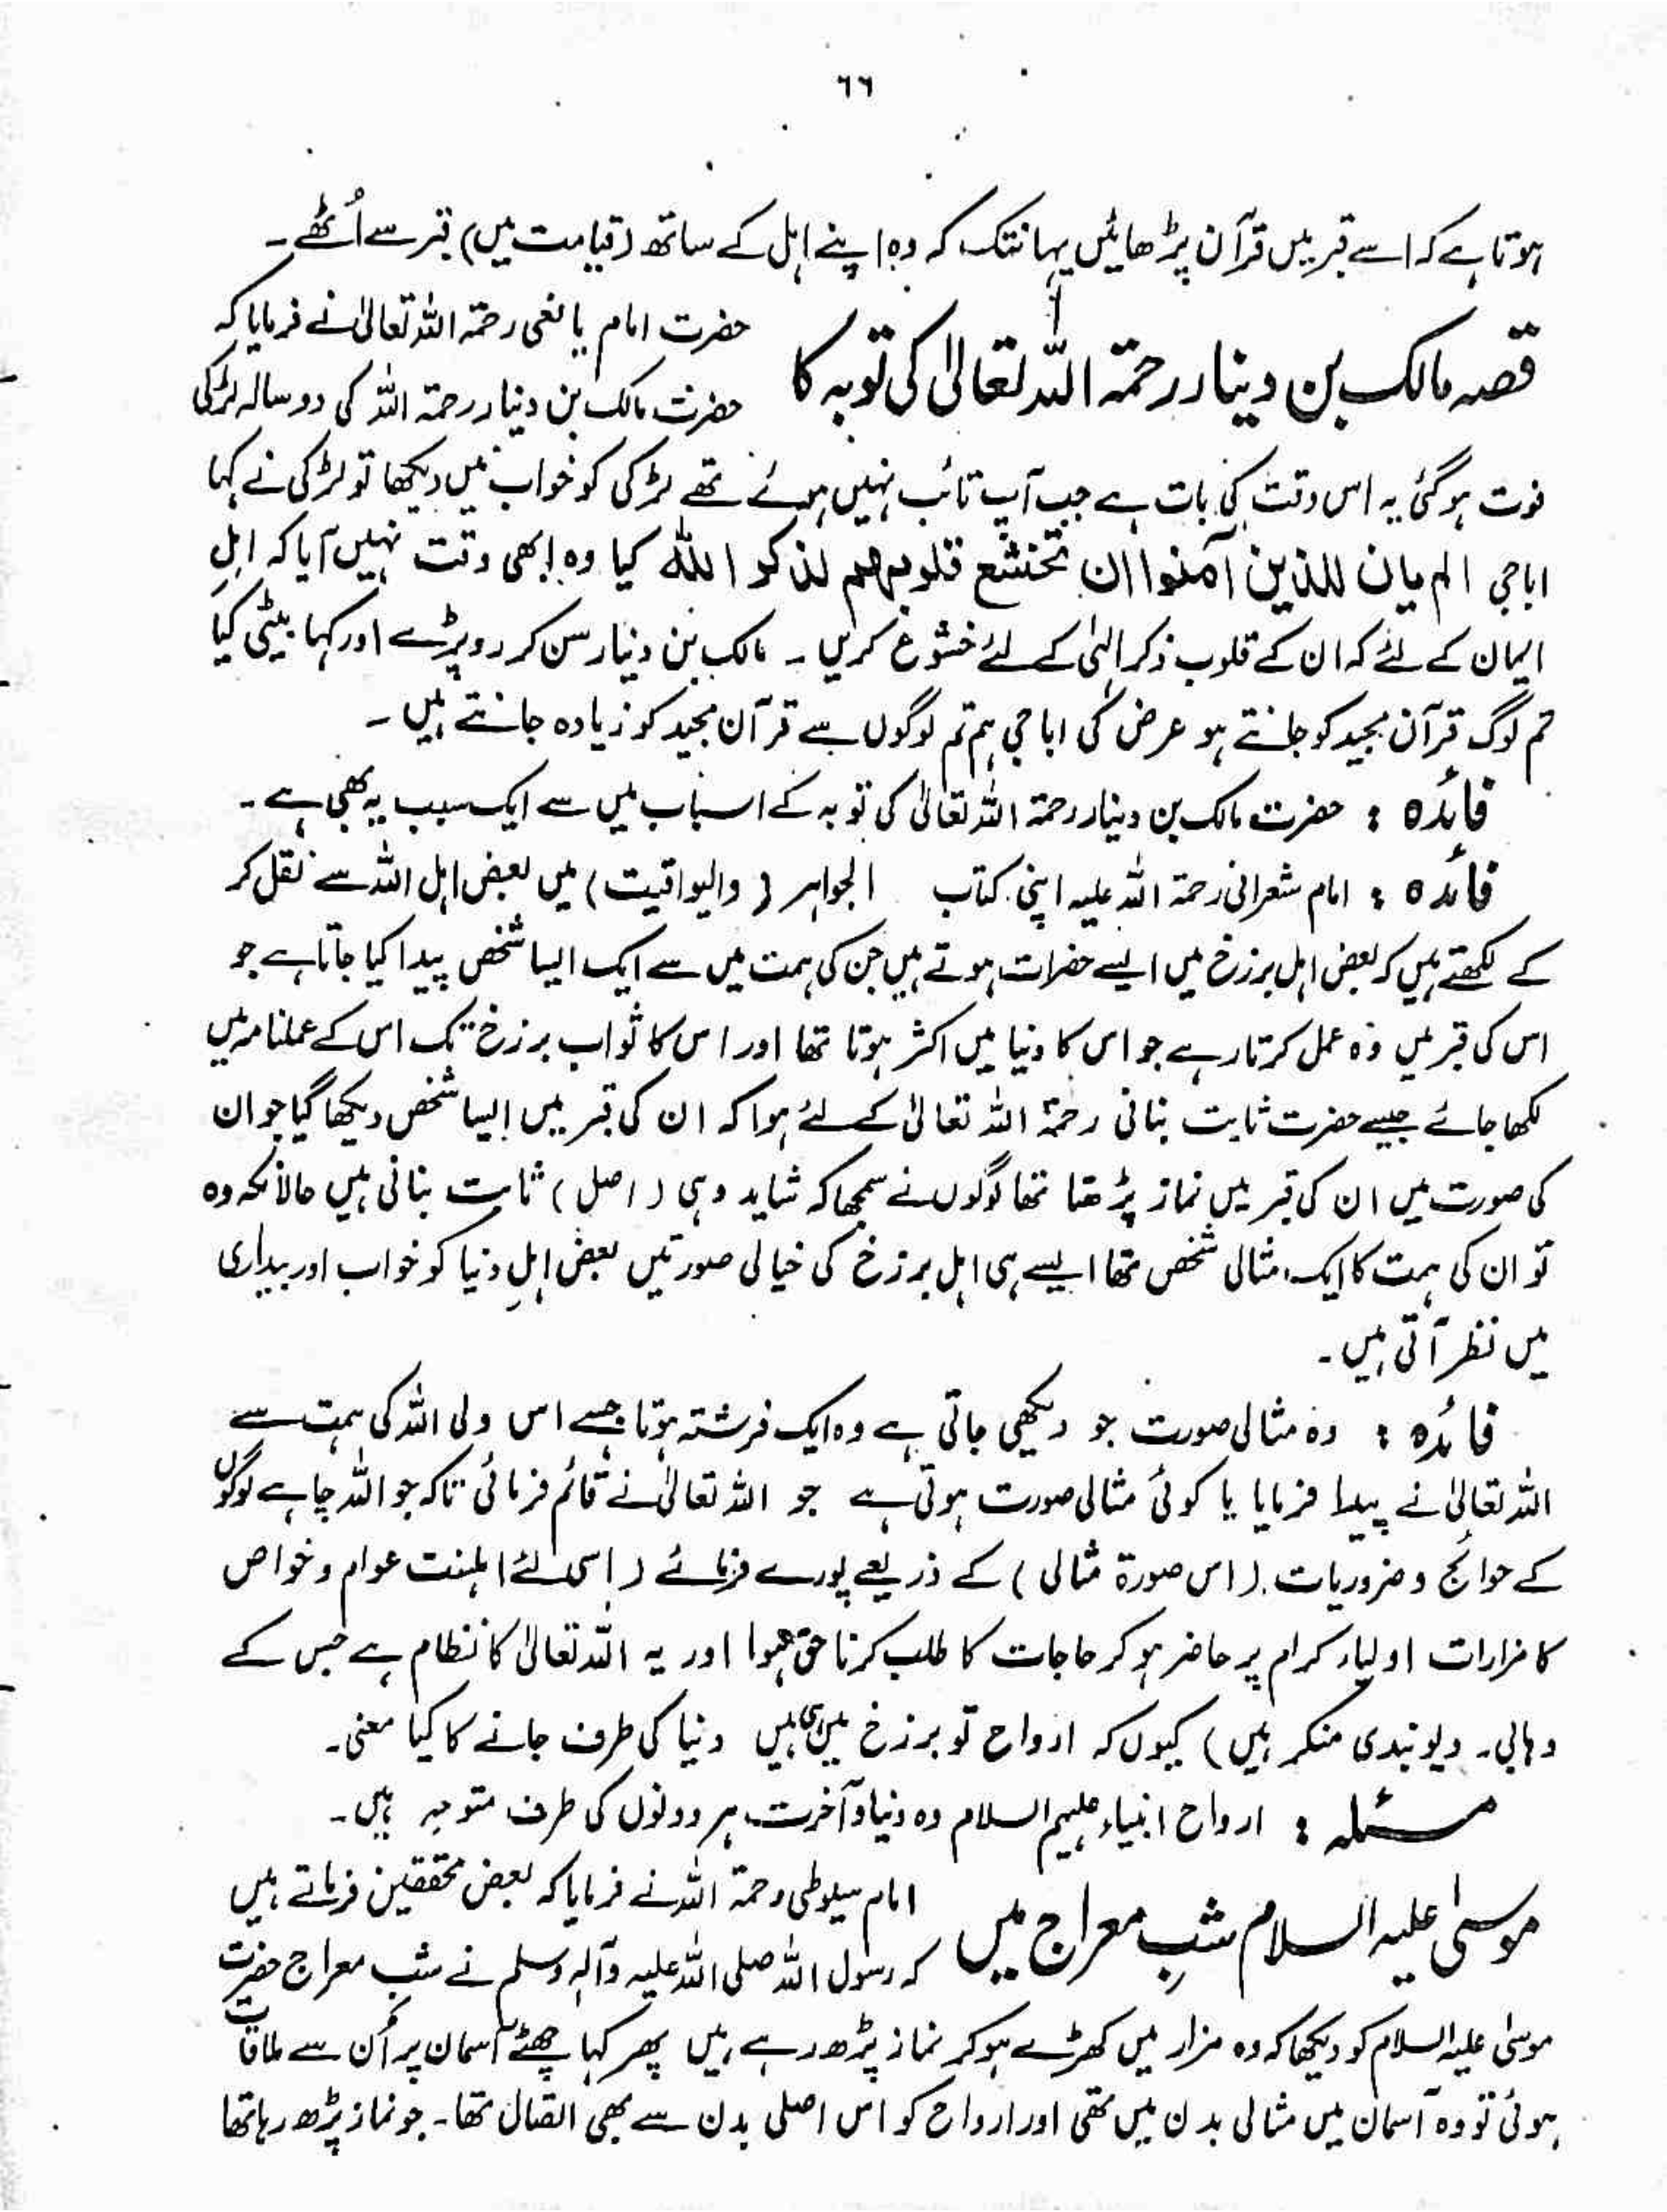 ٦٦
ہوتا ہے کہ اسے قبر میں قرآن پڑھائیں یہانتک کہ وہ اپنے اہل کے ساتھ (قیامت میں) قبر سے اُٹھے۔
قصہ مالک بن دینار رحمۃ اللہ تعالیٰ کی توبہ کا
حضرت امام یافعی رحمۃ اللہ تعالیٰ نے فرمایا کہ
حضرت مالک بن دینار رحمۃ اللہ کی دو سالہ لڑکی
فوت ہوگئی یہ اس وقت کی بات ہے جب آپ تائب نہیں ہوئے تھے لڑکی کو خواب میں دیکھا تو لڑکی نے کہا
اباجی الم یان للذین آمنوا ان تخشع قلوبھم لذکر اللہ کیا وہ ابھی وقت نہیں آیا کہ اہلِ
ایمان کے لئے کہ ان کے قلوب ذکر الٰہی کے لئے خشوع کریں۔ مالک بن دینار سن کر رو پڑے اور کہا بیٹی کیا
تم لوگ قرآن مجید کو جانتے ہو عرض کی اباجی ہم تم لوگوں سے قرآن مجید کو زیادہ جانتے ہیں۔
فائدہ : حضرت مالک بن دینار رحمۃ اللہ تعالیٰ کی توبہ کے اسباب میں سے ایک سبب یہ بھی ہے۔
فائدہ : امام شعرانی رحمۃ اللہ علیہ اپنی کتاب الجواہر (والیواقیت) میں بعض اہل اللہ سے نقل کر
کے لکھتے ہیں کہ بعض اہل برزخ میں ایسے حضرات ہوتے ہیں جن کی ہمت میں سے ایک ایسا شخص پیدا کیا جاتا ہے جو
اس کی قبر میں وہ عمل کرتا رہے جو اس کا دنیا میں اکثر ہوتا تھا اور اس کا ثواب برزخ تک اس کے عملنامہ میں
لکھا جائے جیسے حضرت ثابت بنانی رحمۃ اللہ تعالیٰ کے لئے ہوا کہ ان کی قبر میں ایسا شخص دیکھا گیا جو ان
کی صورت میں ان کی قبر میں نماز پڑھتا تھا لوگوں نے سمجھا کہ شاید وہی (اصل) ثابت بنانی ہیں حالانکہ وہ
تو ان کی ہمت کا ایک مثالی شخص تھا ایسے ہی اہل برزخ کی خیالی صورتیں بعض اہلِ دنیا کو خواب اور بیداری
میں نظر آتی ہیں۔
فائدہ : وہ مثالی صورت جو دیکھی جاتی ہے وہ ایک فرشتہ ہوتا جسے اس ولی اللہ کی ہمت سے
اللہ تعالیٰ نے پیدا فرمایا یا کوئی مثالی صورت ہوتی ہے جو اللہ تعالیٰ نے قائم فرمائی تاکہ جو اللہ چاہے لوگوں
کے حوائج و ضروریات (اس صورۃ مثالی) کے ذریعے پورے فرمائے (اسی لئے اہلسنت عوام و خواص
کا مزارات اولیاء کرام پر حاضر ہو کر حاجات کا طلب کرنا حق ہوا اور یہ اللہ تعالیٰ کا نظام ہے جس کے
وہابی۔ دیوبندی منکر ہیں) کیوں کہ ارواح تو برزخ میں ہی ہیں دنیا کی طرف جانے کا کیا معنی۔
مسئلہ : ارواح انبیاء علیہم السلام وہ دنیا و آخرت ہر دونوں کی طرف متوجہ ہیں۔
موسیٰ علیہ السلام شبِ معراج میں
امام سیوطی رحمۃ اللہ نے فرمایا کہ بعض محققین فرماتے ہیں
کہ رسول اللہ صلی اللہ علیہ وآلہ وسلم نے شب معراج حضرت
موسیٰ علیہ السلام کو دیکھا کہ وہ مزار میں کھڑے ہو کر نماز پڑھ رہے ہیں پھر کہا چھٹے آسمان پر اُن سے ملاقات
ہوئی تو وہ آسمان میں مثالی بدن میں تھی اور ارواح کو اس اصلی بدن سے بھی اتصال تھا۔ جو نماز پڑھ رہا تھا